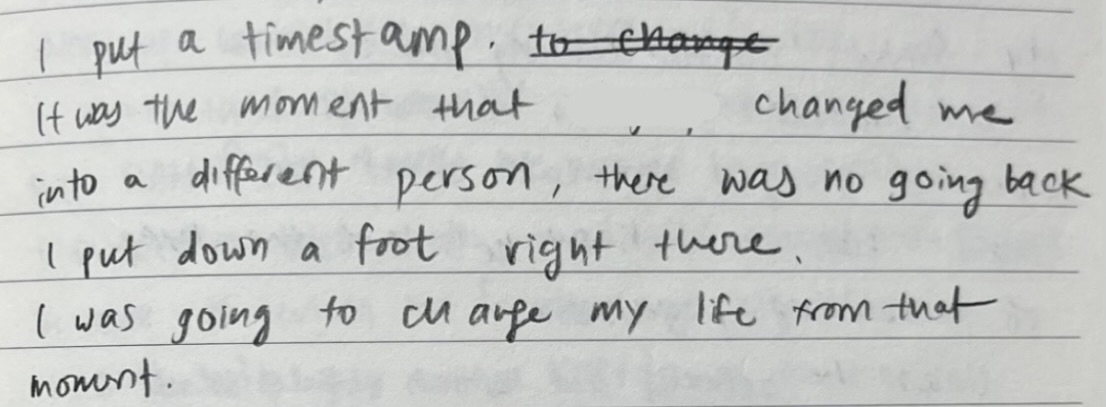 I put a timestamp. to change
It was the moment that changed me
into a different person, there was no going back
I put down a foot right there.
I was going to change my life from that
moment.